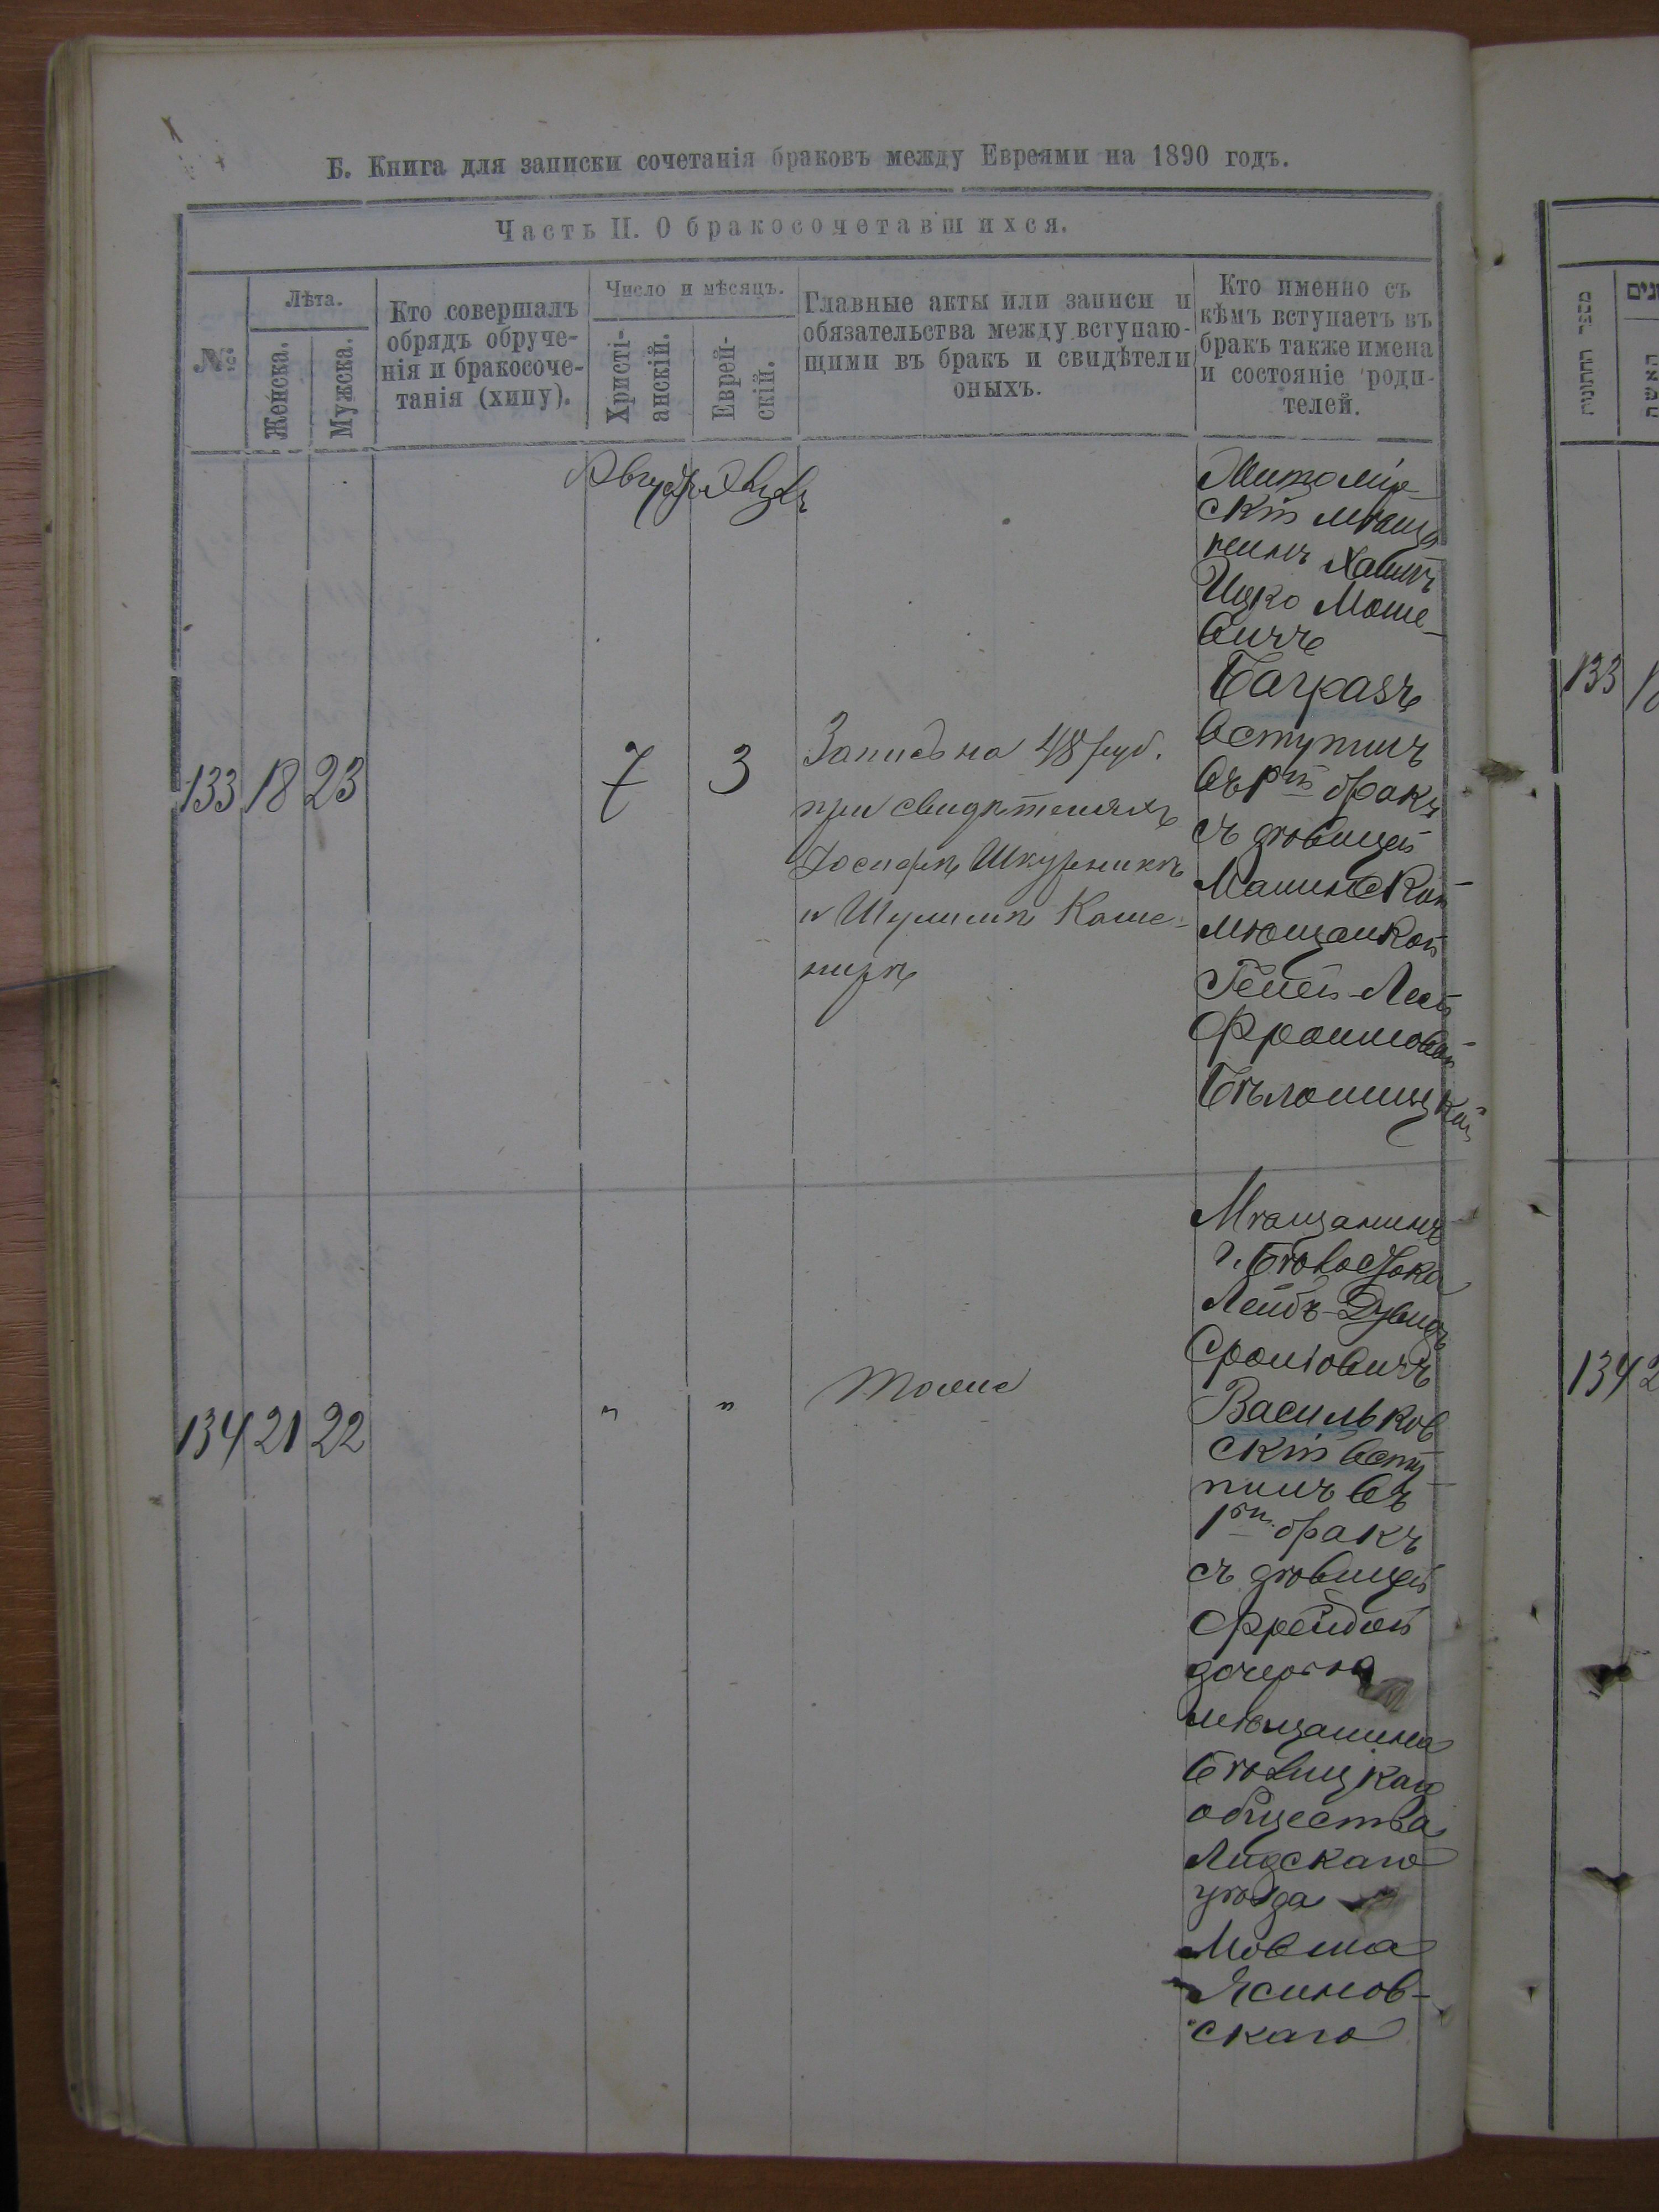 Б. Книга для записки сочетанія браковъ между Евреями на 1890 годъ.
Часть II. О бракосочетавшихся.
№
Лѣта.
Женска.
Мужска.
Кто совершалъ
обрядъ обруче-
нія и бракосоче-
танія (хипу).
Число и мѣсяцъ.
Христі-
анскій.
Еврей-
скій.
Главные акты или записи и
обязательства между вступаю-
щими въ бракъ и свидѣтели
оныхъ.
Кто именно съ
кѣмъ вступаетъ въ
бракъ также имена
и состояніе роди-
телей.
Августъ
133 18 23
7 3
Запись на 48 руб.
при свидѣтеляхъ
Іосифѣ Шкурникѣ
и Шулимѣ Каше-
нирѣ
Житомір-
скій мѣща
нинъ Хаимъ
Ицко Моше-
вичъ
Багразъ
вступилъ
въ 1й бракъ
съ дѣвицей
мѣщанкой
Фроимовой
Бѣлошицкой
134 21 22
" "
Тоже
Мѣщанинъ
г. Бѣлостока
Лейбъ-Дувидъ
Сроліовичъ
Васильков
скій всту
пилъ въ
1й бракъ
съ дѣвицей
Фрейдой
дочерью
мѣщанина
Бѣлицкаго
общества
Лидскаго
уѣзда
Мовша
Ясинов-
скаго
מספר החתונות
האשה
133
134 2